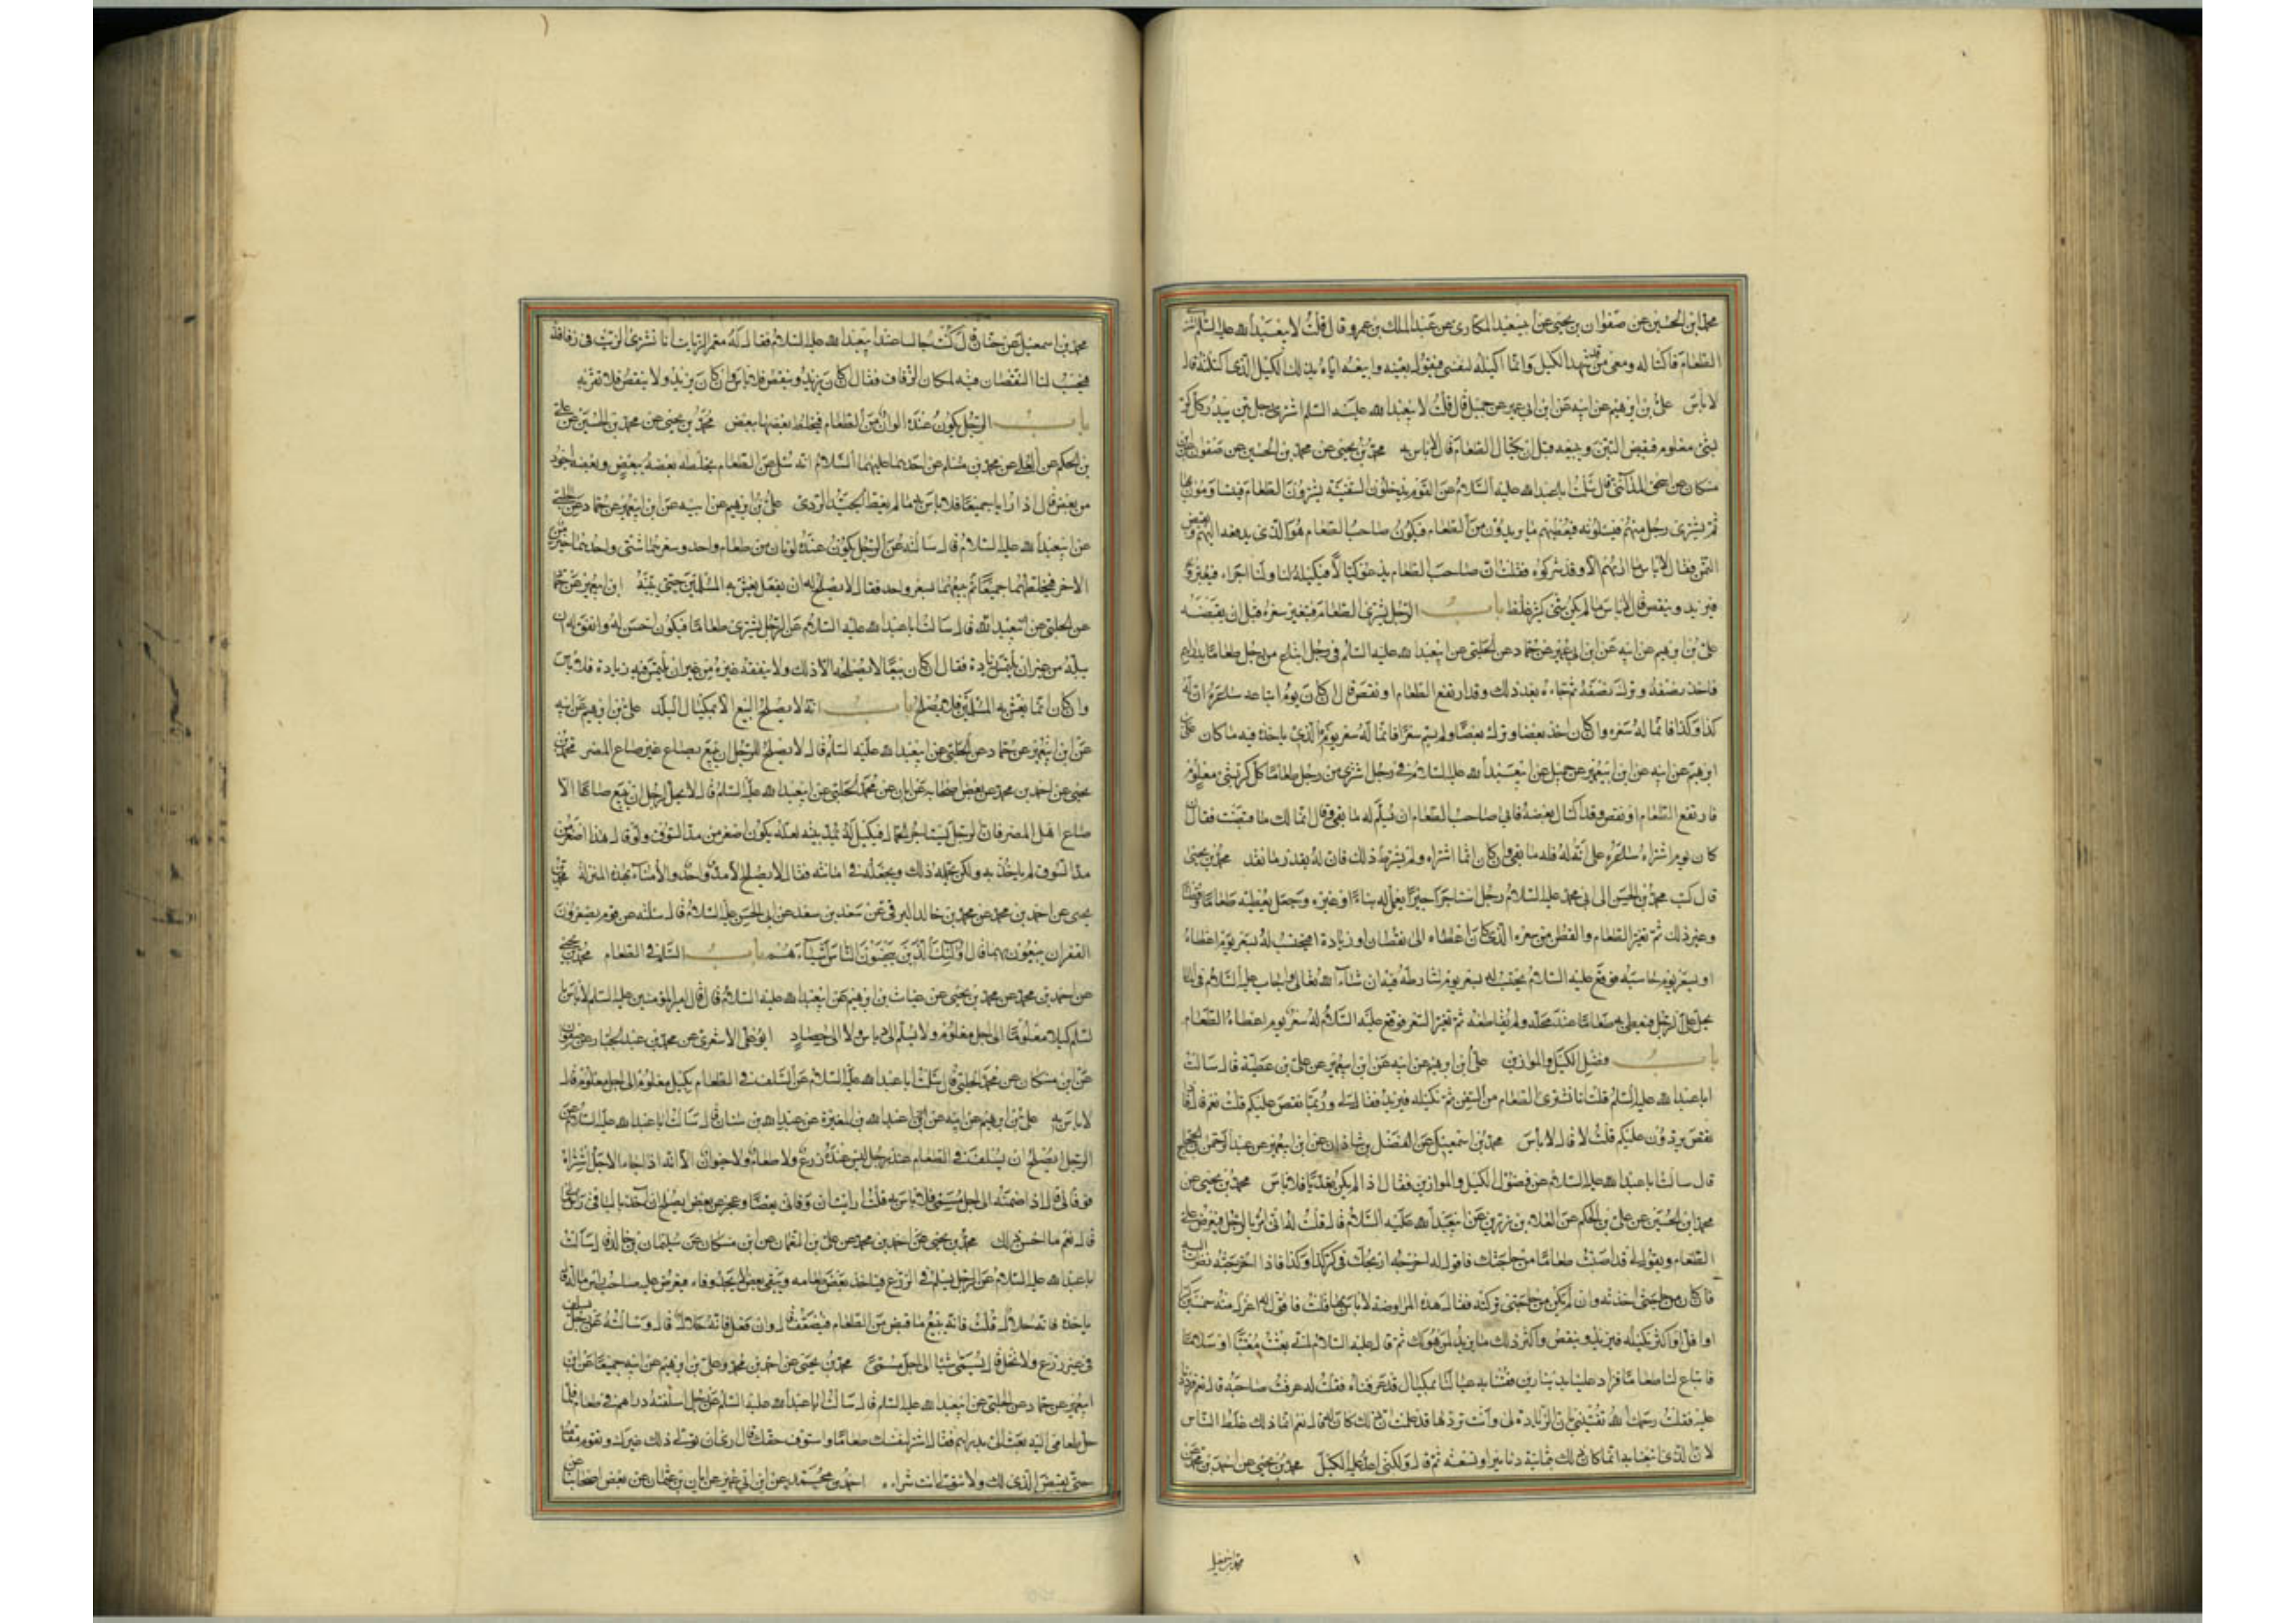 محمد بن الحسين عن صفوان بن يحيى عن ابيسعيد المكارى عن عبد الملك بن عمرو قال قلت لابيعبد الله عليه السلم اشترى
الطعام فاكتاله ومعى من قد شهد الكيل وانما اكيله لنفسى فيقول بعنيه وابيعه اياه بذلك الكيل الذى اكتلته قال
لا باس على بن ابرهيم عن ابيه عن ابن ابى عمير عن جميل قال قلت لابيعبد الله عليه السلم اشترى رجل تبن بيدر كل كر
بشئ معلوم فيقبض التبن ويبيعه قبل ان يكتال الطعام قال لا باس به محمد بن يحيى عن محمد بن الحسين عن صفوان عن ابن
مسكان عن اسحق المدائنى قال سالت ابا عبد الله عليه السلام عن القوم يدخلون السفينة يشترون الطعام فيتساومون بها
ثم يشترى رجل منهم فيسئلونه فيعطيهم ما يريدون من الطعام فيكون صاحب الطعام هو الذى يدفعه اليهم ويقبض
الثمن فقال لا باس ما اراهم الا وقد شركوه فقلت ان صاحب الطعام يدعو كيالا فيكيله لنا ولنا اجراء فيعيرونه
فيزيد وينقص قال لا باس ما لم يكن شئ كثير غلط باب الرجل يشترى الطعام فيتغير سعره قبل ان يقبضه
على بن ابرهيم عن ابيه عن ابن ابى عمير عن حماد عن الحلبى عن ابيعبد الله عليه السلم فى رجل ابتاع من رجل طعاما بدراهم
فاخذ نصفه وترك نصفه ثم جاءه بعد ذلك وقد ارتفع الطعام او نقص قال ان كان يوم ابتاعه ساعره ان له
كذا وكذا فانما له سعره وان كان اخذ بعضا وترك بعضا ولم يسم سعرا فانما له سعر يومه الذى ياخذ فيه ما كان على بن
ابرهيم عن ابيه عن ابن ابيعمير عن جميل عن ابيعبد الله عليه السلام فى رجل اشترى من رجل طعاما كل كر بشئ معلوم
فارتفع الطعام او نقص وقد اكتال بعضه فابى صاحب الطعام ان يسلم له ما بقى وقال انما لك ما قبضت فقال ان
كان يوم اشتراه ساعره على انه له فله ما بقى وان كان انما اشتراه ولم يشترط ذلك فان له بقدر ما نقد محمد بن يحيى
قال كتب محمد بن الحسن الى ابى محمد عليه السلام رجل استاجر اجيرا يعمل له بناء او غيره وجعل يعطيه طعاما وقطنا
وغير ذلك ثم تغير الطعام والقطن من سعره الذى كان اعطاه الى نقصان او زيادة ايحتسب له بسعر يوم اعطاه
او بسعر يوم حاسبه فوقع عليه السلام يحتسب له بسعر يوم شارطه فيه ان شاء الله تعالى واجاب عليه السلام فى المال
يحل على الرجل فيعطى به طعاما عند محله ولم يقاطعه ثم تغير السعر فوقع عليه السلام له سعر يوم اعطاه الطعام
باب فضل الكيل والموازين على بن ابرهيم عن ابيه عن ابن ابيعمير عن على بن عطية قال سالت
ابا عبد الله عليه السلم قلت انا نشترى الطعام من السفن ثم نكيله فيزيد فقال لى وربما نقص عليكم قلت نعم قال فاذا
نقص يردون عليكم قلت لا قال لا باس محمد بن اسمعيل عن الفضل بن شاذان عن ابن ابيعمير عن عبد الرحمن بن الحجاج
قال سالت ابا عبد الله عليه السلام عن فضول الكيل والموازين فقال اذا لم يكن تعديا فلا باس محمد بن يحيى عن
محمد بن الحسين عن على بن الحكم عن العلاء بن رزين عن ابيعبد الله عليه السلام قال قلت له انى امر بالرجل فيعرض على
الطعام ويقول لى قد اصبت طعاما من حاجتك فاقول له اخرجه اربحك فى كر كذا وكذا فاذا اخرجته نظرت اليه
فان كان من حاجتى اخذته وان لم يكن من حاجتى تركته فقال هذه المراوضة لا باس بها قلت فاقول له اعزل منه خمسين كرا
او اقل او اكثر بكيله فيزيد وينقص واكثر ذلك ما يزيد لمن هو لك ثم قال عليه السلام انى بعثت معتبا او سلاما
فابتاع لنا طعاما فزاد علينا بدينارين فقتنا به عيالنا بمكيال قد عرفناه فقلت له عرفت صاحبه قال نعم فرددنا
عليه فقلت رحمك الله تفتينى بان الزيادة لى وانت تردها قد علمت ان ذلك كان له قال نعم انما ذلك غلط الناس
لان الذى ابتعنا به انما كان ذلك بثمانية دنانير او تسعة ثم قال ولكنى اعد عليه الكيل محمد بن يحيى عن احمد بن محمد عن
محمد بن اسمعيل
محمد بن اسمعيل عن حنان قال كنت جالسا عند ابيعبد الله عليه السلام فقال له معمر الزيات انا نشترى الزيت فى زقاقه
فيحسب لنا النقصان فيه لمكان الزقاق فقال ان كان يزيد وينقص فلا باس وان كان يزيد ولا ينقص فلا تقربه
باب الرجل يكون عنده الوان من الطعام فيخلط بعضها ببعض محمد بن يحيى عن محمد بن الحسين عن على
بن الحكم عن العلا عن محمد بن مسلم عن احدهما عليهما السلام انه سئل عن الطعام يخلط بعضه ببعض وبعضه اجود
من بعض قال اذا رايا جميعا فلا باس ما لم يغط الجيد الردى على بن ابرهيم عن ابيه عن ابن ابيعمير عن حماد عن الحلبى
عن ابيعبد الله عليه السلام قال سالته عن الرجل يكون عنده لونان من طعام واحد وسعرهما شتى واحدهما خير من
الاخر فيخلطهما جميعا ثم يبيعهما بسعر واحد فقال لا يصلح له ان يفعل يغش به المسلمين حتى يبينه ابن ابيعمير عن حماد
عن الحلبى عن ابيعبد الله قال سالت ابا عبد الله عليه السلام عن الرجل يشترى طعاما فيكون احسن له وانفق له ان
يبله من غير ان يلتمس زيادة فقال ان كان بيعا لا يصلحه الا ذلك ولا ينفقه غيره من غير ان يلتمس فيه زيادة فلا باس
وان كان انما يغش به المسلمين فلا يصلح باب انه لا يصلح البيع الا بمكيال البلد على بن ابرهيم عن ابيه
عن ابن ابيعمير عن حماد عن الحلبى عن ابيعبد الله عليه السلم قال لا يصلح للرجل ان يبيع بصاع غير صاع المصر محمد بن
يحيى عن احمد بن محمد عن بعض اصحابه عن ابان عن محمد الحلبى عن ابيعبد الله عليه السلم قال لا يحل لرجل ان يبيع صاعا الا
صاع اهل المصر فان الرجل يستاجر الحمال فيكيل له بمد بيته لعله يكون اصغر من مد السوق ولو قال هذا اصغر من
مد السوق لم ياخذ به ولكن يحمله ذلك ويجعله فى امانته فقال لا يصلح الا مد واحد والامناء بهذه المنزلة محمد بن
يحيى عن احمد بن محمد عن محمد بن خالد البرقى عن سعد بن سعد عن ابى الحسن عليه السلام قال سئلته عن قوم يصغرون
القفزان يبيعون بها قال اولئك الذين يبخسون الناس اشياءهم باب السلم فى الطعام محمد بن يحيى
عن احمد بن محمد عن محمد بن يحيى عن غياث بن ابرهيم عن ابيعبد الله عليه السلام قال قال امير المؤمنين عليه السلم لا باس
بالسلم كيلا معلوما الى اجل معلوم ولا يسلم الى دياس ولا الى حصاد ابو على الاشعرى عن محمد بن عبد الجبار عن صفوان
عن ابن مسكان عن محمد الحلبى قال سالت ابا عبد الله عليه السلام عن السلف فى الطعام بكيل معلوم الى اجل معلوم قال
لا باس به على بن ابرهيم عن ابيه عن عبد الله بن المغيرة عن عبد الله بن سنان قال سالت ابا عبد الله عليه السلام عن
الرجل ايصلح ان يسلف فى الطعام عند رجل ليس عنده زرع ولا طعام ولا حيوان الا انه اذا جاء الاجل اشتراه
فوفاه قال اذا ضمنه الى اجل مسمى فلا باس به قلت ارايت ان وفانى بعضا وعجز عن بعض ايصلح ان اخذ بالباقى راس مالى
قال نعم ما احسن ذلك محمد بن يحيى عن احمد بن محمد عن على بن النعمان عن ابن مسكان عن سليمان بن خالد قال سالت
ابا عبد الله عليه السلام عن الرجل يسلم فى الزرع فياخذ بعض طعامه ويبقى بعض لا يجد وفاء فيعرض عليه صاحبه راس ماله قال
ياخذه فانه حلال قلت فانه يبيع ما قبض من الطعام فيضعف قال وان فعل فانه حلال قال وسالته عن رجل يسلف
فى غير زرع ولا نخل قال يسمى شيئا الى اجل مسمى محمد بن يحيى عن احمد بن محمد وعلى بن ابرهيم عن ابيه جميعا عن ابن
ابيعمير عن حماد عن الحلبى عن ابيعبد الله عليه السلم قال سالت ابا عبد الله عليه السلم عن رجل اسلفته دراهم فى طعام فلما
حل طعامى عليه بعث الى بدراهم فقال اشتر لنفسك طعاما واستوف حقك قال ارى ان تولى ذلك غيرك وتقوم معه
حتى يقبض الذى لك ولا تتولى انت شراءه احمد بن محمد عن ابن ابى عمير عن ابان بن عثمان عن بعض اصحابنا عن